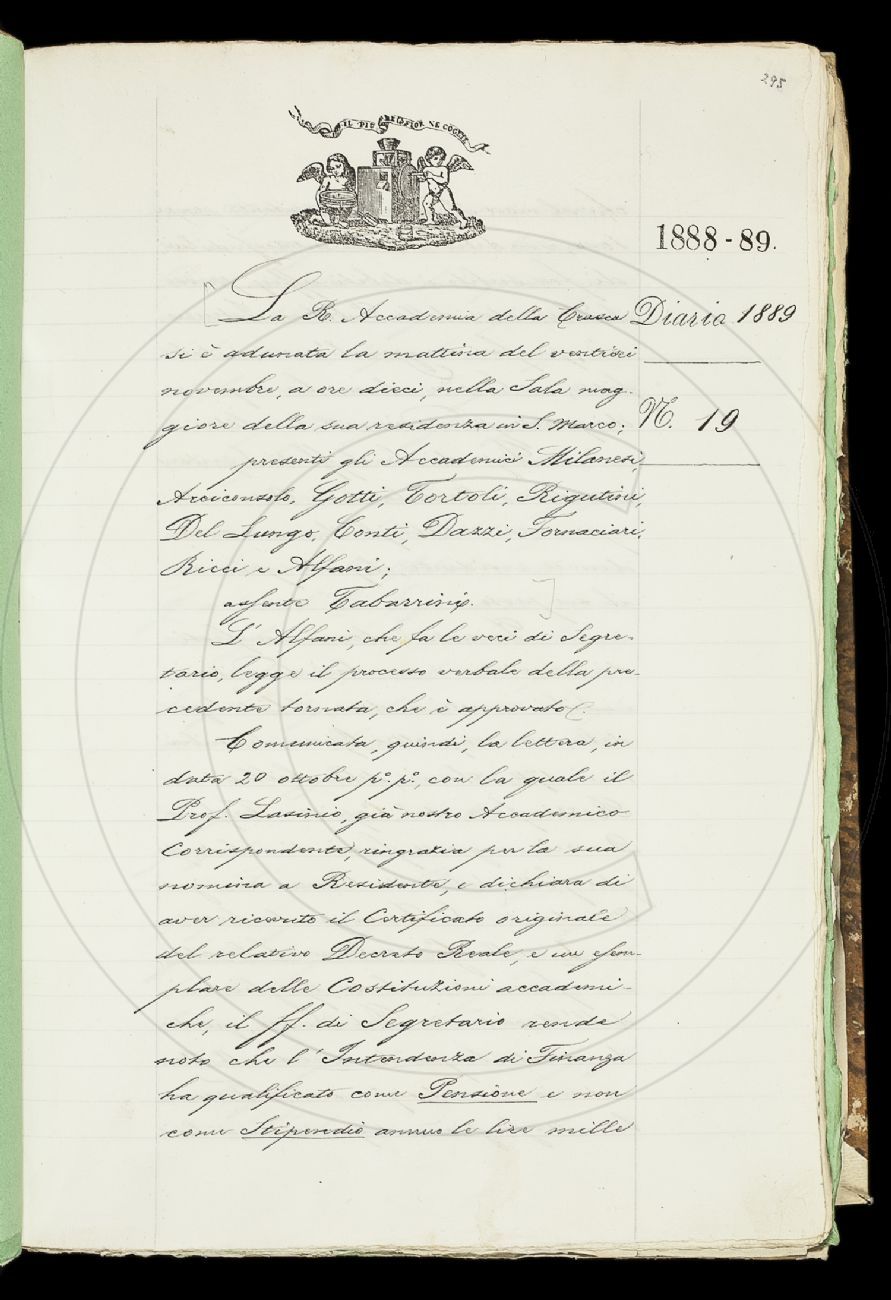 295
IL PIU BEL FIOR NE COGLIE
1888-89.
La R. Accademia della Crusca
Diario 1889
si è adunata la mattina del ventisei
novembre, a ore dieci, nella Sala mag-
giore della sua residenza in S. Marco;
N. 19
presenti gli Accademici Milanesi,
Arciconsolo, Gotti, Tortoli, Rigutini,
Del Lungo, Conti, Dazzi, Fornaciari,
Ricci e Alfani;
assente Tabarrini.
L'Alfani, che fa le veci di Segre-
tario, legge il processo verbale della pre-
cedente tornata, che è approvato.
Comunicata, quindi, la lettera, in
data 20 ottobre p.º p.º, con la quale il
Prof. Lasinio, già nostro Accademico
Corrispondente, ringrazia per la sua
nomina a Residente, e dichiara di
aver ricevuto il Certificato originale
del relativo Decreto Reale, e un esem-
plare delle Costituzioni accademi-
che, il ff. di Segretario rende
noto che l'Intendenza di Finanza
ha qualificato come Pensione e non
come Stipendio annuo le lire mille